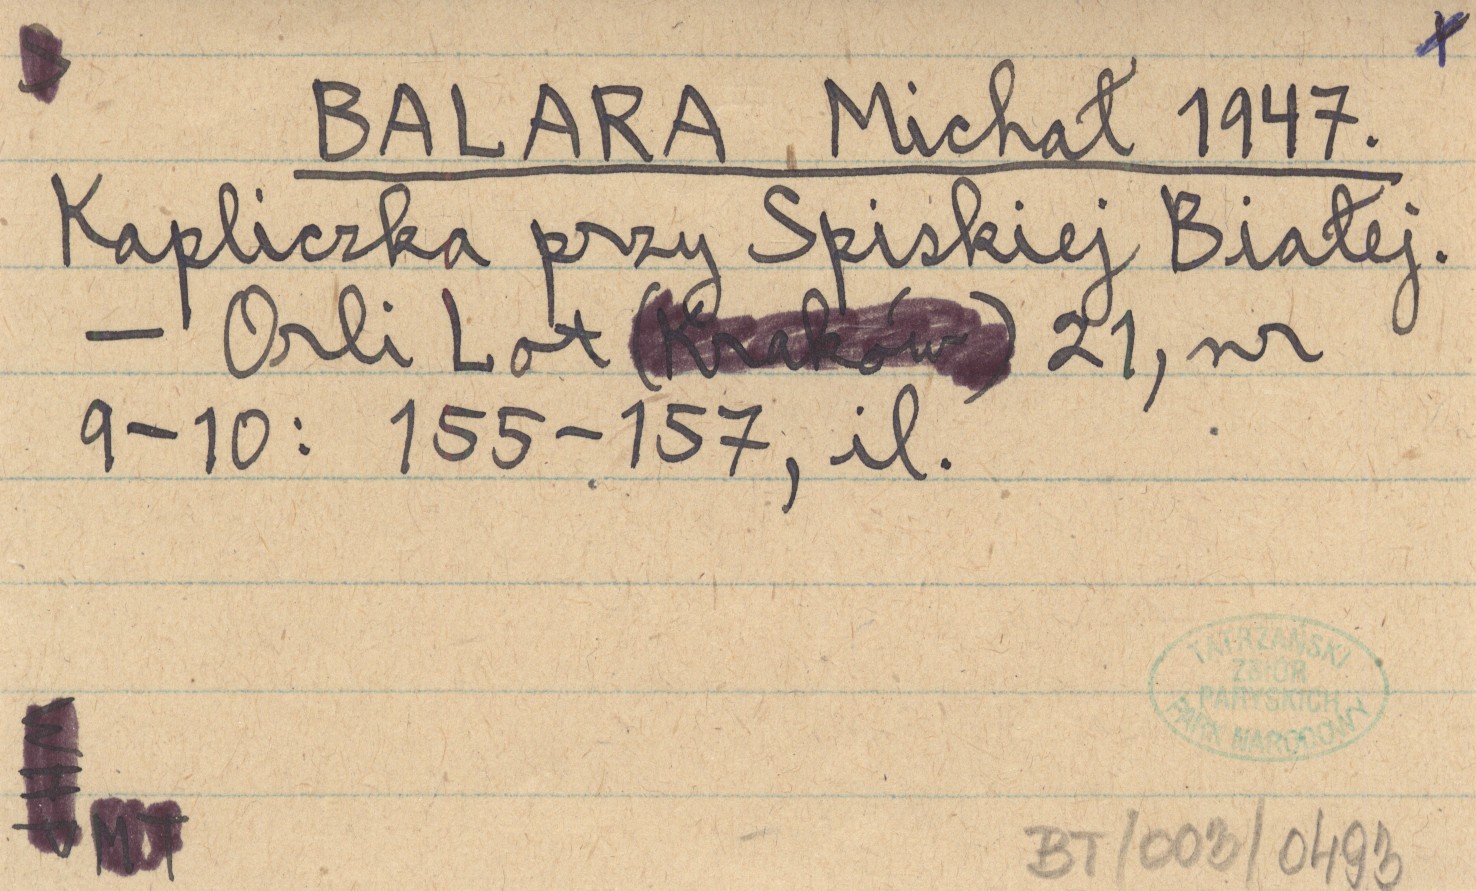 BALARA Michał 1947.
Kapliczka przy Spiskiej Białej.
— Orli Lot (Kraków) 21, nr
9–10: 155–157, il.
TATRZAŃSKI
ZBIÓR
PARYSKICH
PARK NARODOWY
MT
BT/003/0493